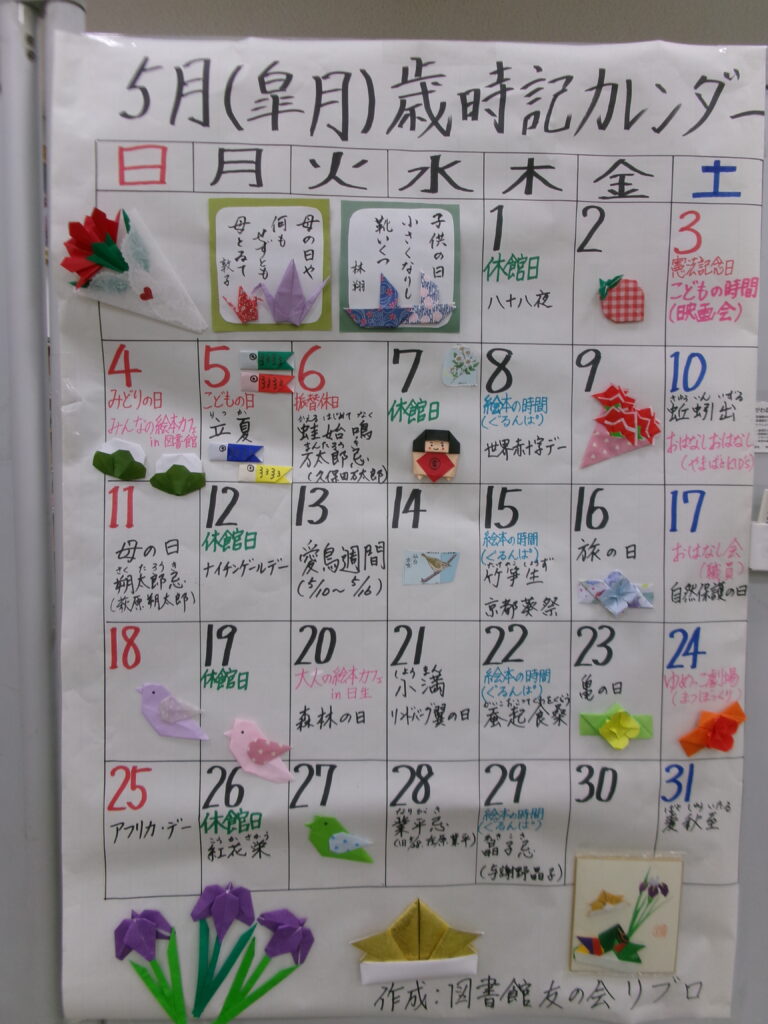 5月(皐月)歳時記カレンダー
日 月 火 水 木 金 土
母の日や
何も
せずとも
母とゐて
敦子
子供の日
小さくなりし
靴いくつ
林翔
1
休館日
八十八夜
2
3
憲法記念日
こどもの時間
(映画会)
4
みどりの日
みんなの絵本カフェ
in 図書館
5
こどもの日
りっか
立夏
6
振替休日
かえるはじめてなく
蛙始鳴
まんたろうき
万太郎忌
(久保田万太郎)
7
休館日
8
絵本の時間
(ぐるんぱ)
世界赤十字デー
9
10
みみずいずる
蚯蚓出
おはなしおはなし
(やまばとKIDS)
11
母の日
さくたろうき
朔太郎忌
(萩原朔太郎)
12
休館日
ナイチンゲールデー
13
愛鳥週間
(5/10〜5/16)
14
15
絵本の時間
(ぐるんぱ)
竹笋生
京都葵祭
16
旅の日
17
おはなし会
(職員)
自然保護の日
18
19
休館日
20
大人の絵本カフェ
in 日生
森林の日
21
しょうまん
小満
リンドバーグ翼の日
22
絵本の時間
(ぐるんぱ)
かいこおこってくわをくらう
蚕起食桑
23
亀の日
24
ゆめっこ劇場
(まつぼっくり)
25
アフリカ・デー
26
休館日
紅花栄
27
28
なりひらき
業平忌
(旧暦 在原業平)
29
絵本の時間
(ぐるんぱ)
あきこき
晶子忌
(与謝野晶子)
30
31
むぎのときいたる
麦秋至
作成:図書館友の会リブロ